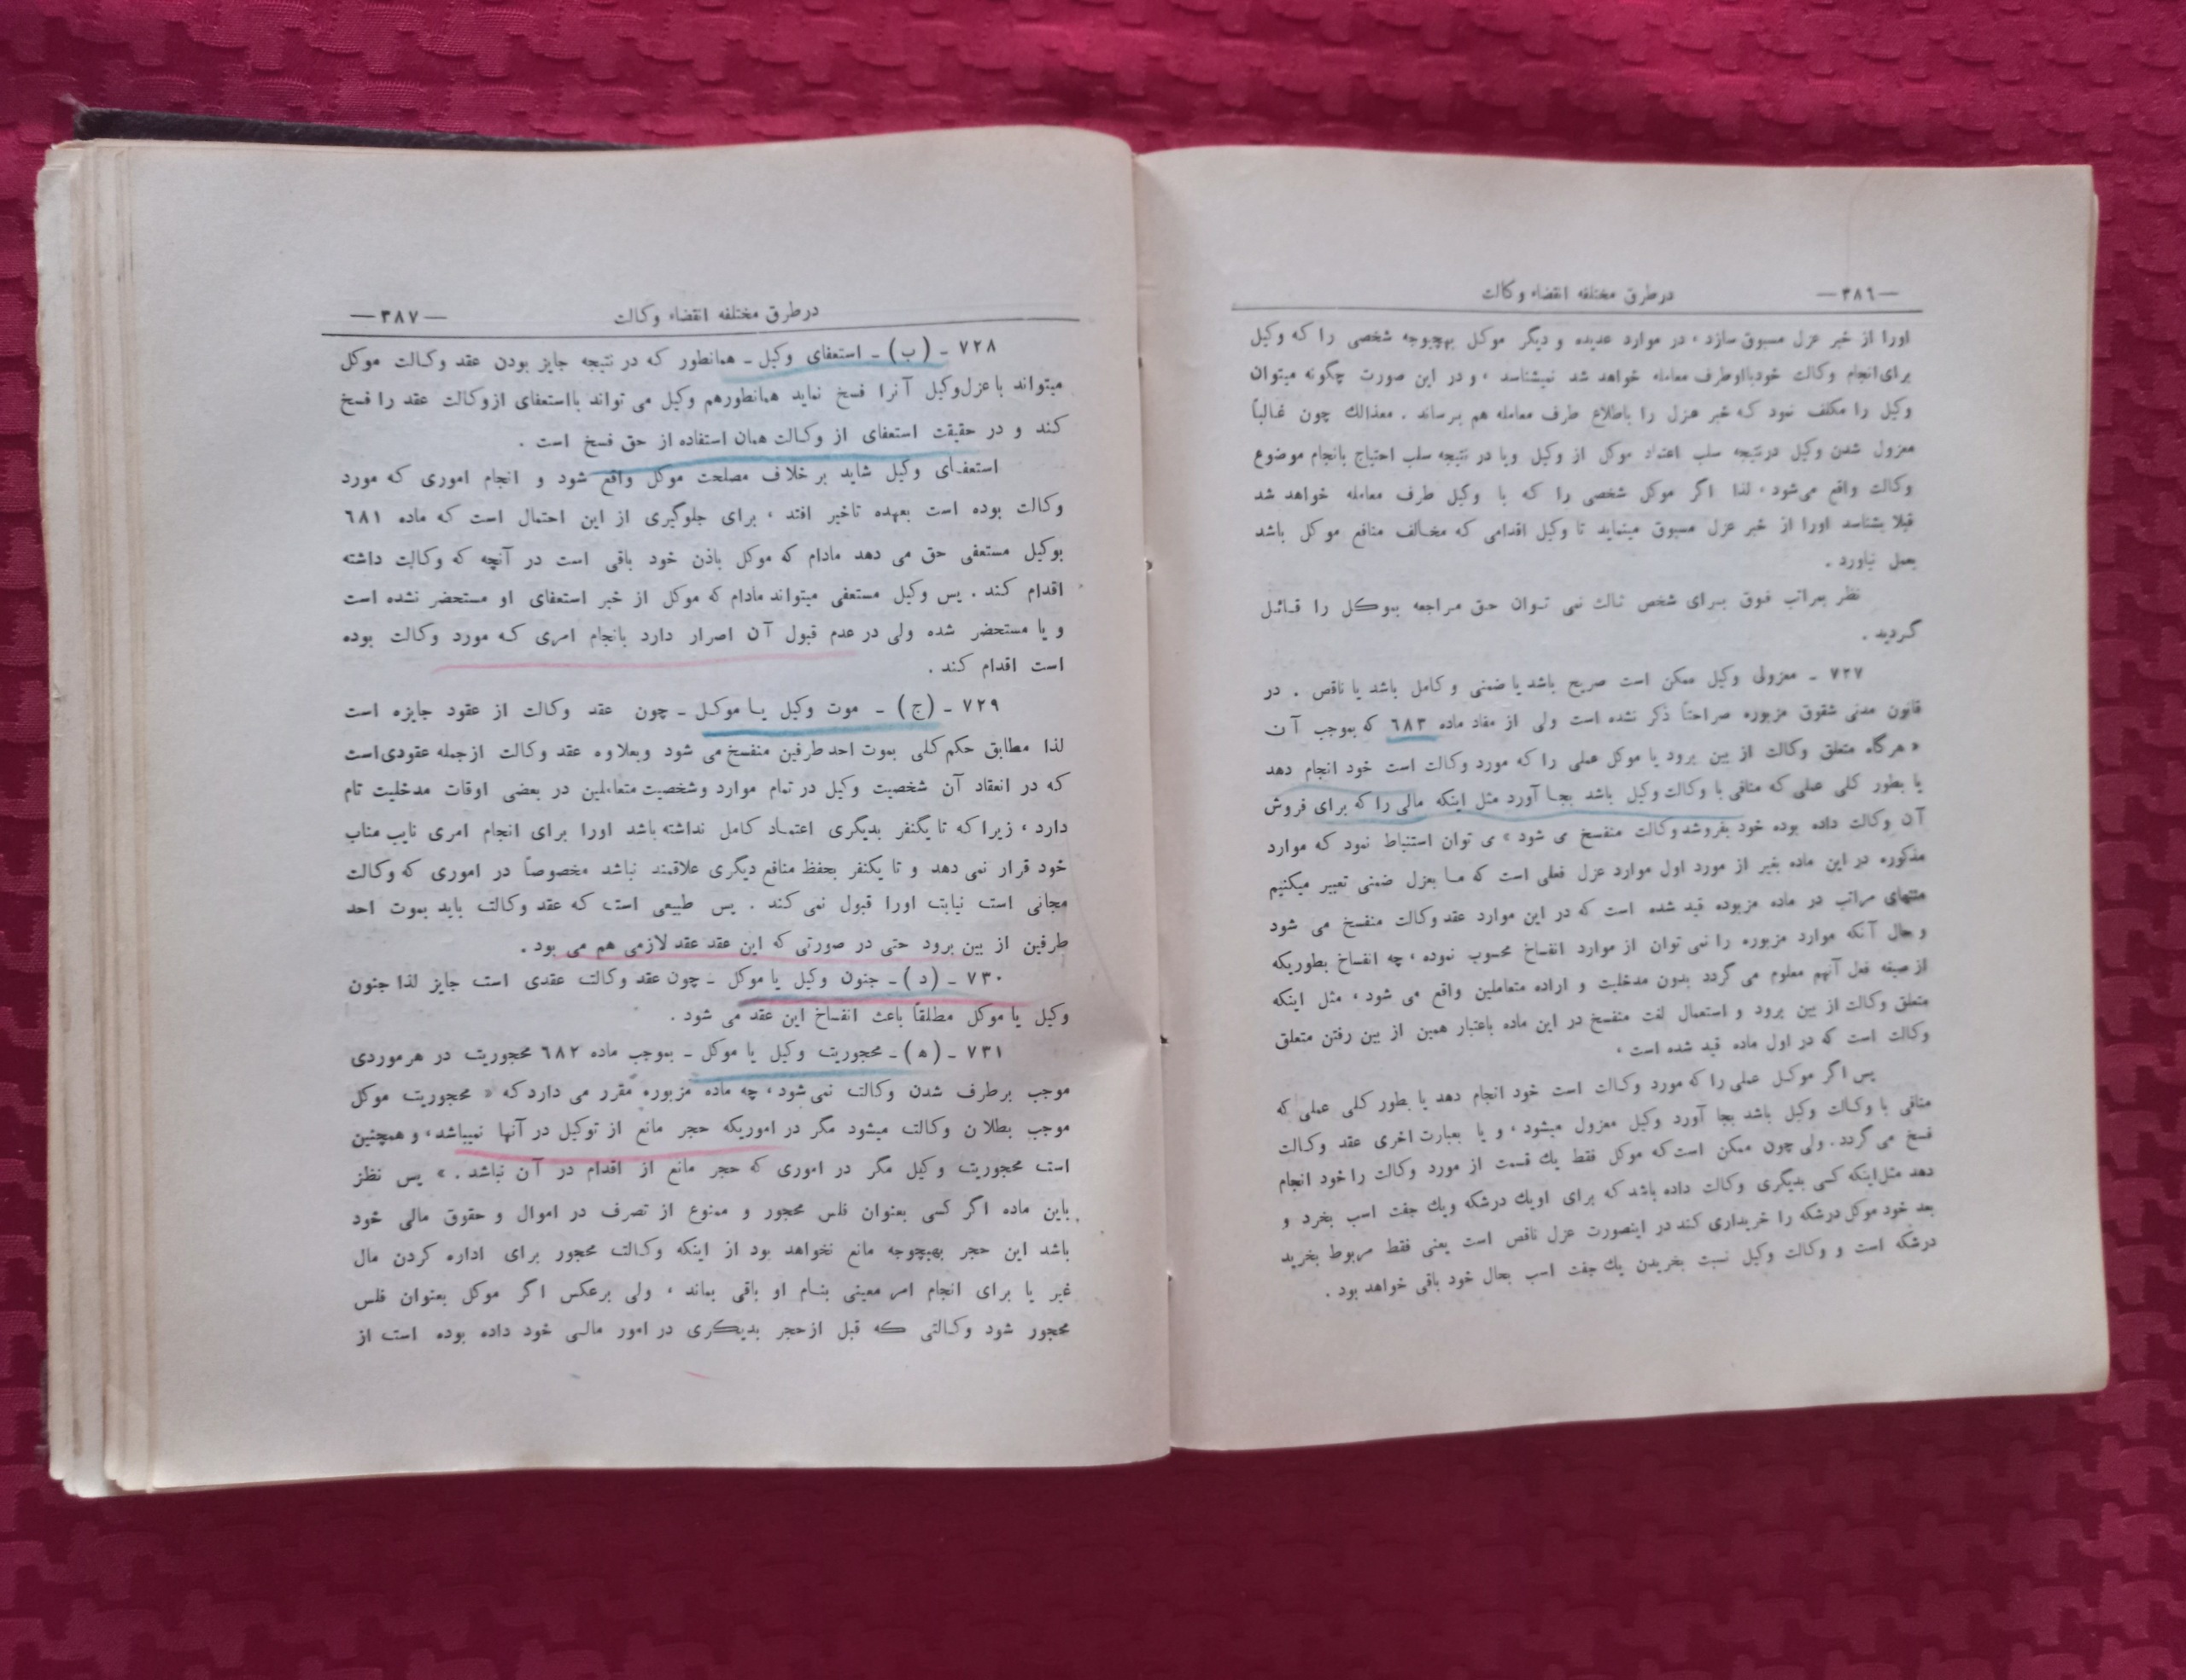 —۳۸۶—
در طرق مختلفه انقضاء وکالت
اورا از خبر عزل مسبوق سازد، در موارد عدیده و دیگر موکل بهیچوجه شخصی را که وکیل
برای انجام وکالت خود با او طرف معامله خواهد شد نمیشناسد، و در این صورت چگونه میتوان
وکیل را مکلف نمود که خبر عزل را باطلاع طرف معامله هم برساند. معذالك چون غالباً
معزول شدن وکیل در نتیجه سلب اعتماد موکل از وکیل و یا در نتیجه سلب احتیاج بانجام موضوع
وکالت واقع می‌شود، لذا اگر موکل شخصی را که با وکیل طرف معامله خواهد شد
قبلا بشناسد اورا از خبر عزل مسبوق مینماید تا وکیل اقدامی که مخالف منافع موکل باشد
بعمل نیاورد.
نظر بمراتب فوق برای شخص ثالث نمی توان حق مراجعه بموکل را قائل
گردید.
۷۲۷ - معزولی وکیل ممکن است صریح باشد یا ضمنی و کامل باشد یا ناقص. در
قانون مدنی شقوق مزبوره صراحتاً ذکر نشده است ولی از مفاد ماده ۶۸۳ که بموجب آن
«هرگاه متعلق وکالت از بین برود یا موکل عملی را که مورد وکالت است خود انجام دهد
یا بطور کلی عملی که منافی با وکالت وکیل باشد بجا آورد مثل اینکه مالی را که برای فروش
آن وکالت داده بوده خود بفروشد وکالت منفسخ می شود» می توان استنباط نمود که موارد
مذکوره در این ماده بغیر از مورد اول موارد عزل فعلی است که ما بعزل ضمنی تعبیر میکنیم
منتهای مراتب در ماده مزبوده قید شده است که در این موارد عقد وکالت منفسخ می شود
و حال آنکه موارد مزبوره را نمی توان از موارد انفساخ محسوب نموده، چه انفساخ بطوریکه
از صیغه فعل آنهم معلوم می گردد بدون مدخلیت و اراده متعاملین واقع می شود، مثل اینکه
متعلق وکالت از بین برود و استعمال لغت منفسخ در این ماده باعتبار همین از بین رفتن متعلق
وکالت است که در اول ماده قید شده است.
پس اگر موکل عملی را که مورد وکالت است خود انجام دهد یا بطور کلی عملی که
منافی با وکالت وکیل باشد بجا آورد وکیل معزول میشود، و یا بعبارت اخری عقد وکالت
فسخ می گردد. ولی چون ممکن است که موکل فقط یك قسمت از مورد وکالت را خود انجام
دهد مثل اینکه کسی بدیگری وکالت داده باشد که برای او یك درشکه و یك جفت اسب بخرد و
بعد خود موکل درشکه را خریداری کند در اینصورت عزل ناقص است یعنی فقط مربوط بخرید
درشکه است و وکالت وکیل نسبت بخریدن یك جفت اسب بحال خود باقی خواهد بود.
در طرق مختلفه انقضاء وکالت
—۳۸۷—
۷۲۸ - (ب) - استعفای وکیل - همانطور که در نتیجه جایز بودن عقد وکالت موکل
میتواند با عزل وکیل آنرا فسخ نماید همانطورهم وکیل می تواند بااستعفای از وکالت عقد را فسخ
کند و در حقیقت استعفای از وکالت همان استفاده از حق فسخ است.
استعفای وکیل شاید بر خلاف مصلحت موکل واقع شود و انجام اموری که مورد
وکالت بوده است بعهده تاخیر افتد، برای جلوگیری از این احتمال است که ماده ۶۸۱
بوکیل مستعفی حق می دهد مادام که موکل باذن خود باقی است در آنچه که وکالت داشته
اقدام کند. پس وکیل مستعفی میتواند مادام که موکل از خبر استعفای او مستحضر نشده است
و یا مستحضر شده ولی در عدم قبول آن اصرار دارد بانجام امری که مورد وکالت بوده
است اقدام کند.
۷۲۹ - (ج) - موت وکیل یا موکل - چون عقد وکالت از عقود جایزه است
لذا مطابق حکم کلی بموت احد طرفین منفسخ می شود وبعلاوه عقد وکالت ازجمله عقودی است
که در انعقاد آن شخصیت وکیل در تمام موارد وشخصیت متعاملین در بعضی اوقات مدخلیت تام
دارد، زیرا که تا یکنفر بدیگری اعتماد کامل نداشته باشد اورا برای انجام امری نایب مناب
خود قرار نمی دهد و تا یکنفر بحفظ منافع دیگری علاقمند نباشد مخصوصاً در اموری که وکالت
مجانی است نیابت اورا قبول نمی کند. پس طبیعی است که عقد وکالت باید بموت احد
طرفین از بین برود حتی در صورتی که این عقد عقد لازمی هم می بود.
۷۳۰ - (د) - جنون وکیل یا موکل - چون عقد وکالت عقدی است جایز لذا جنون
وکیل یا موکل مطلقاً باعث انفساخ این عقد می شود.
۷۳۱ - (ه) - محجوریت وکیل یا موکل - بموجب ماده ۶۸۲ محجوریت در هرموردی
موجب برطرف شدن وکالت نمی شود، چه ماده مزبوره مقرر می دارد که «محجوریت موکل
موجب بطلان وکالت میشود مگر در اموریکه حجر مانع از توکیل در آنها نمیباشد، و همچنین
است محجوریت وکیل مگر در اموری که حجر مانع از اقدام در آن نباشد.» پس نظر
باین ماده اگر کسی بعنوان فلس محجور و ممنوع از تصرف در اموال و حقوق مالی خود
باشد این حجر بهیچوجه مانع نخواهد بود از اینکه وکالت محجور برای اداره کردن مال
غیر یا برای انجام امر معینی بنام او باقی بماند، ولی برعکس اگر موکل بعنوان فلس
محجور شود وکالتی که قبل ازحجر بدیگری در امور مالی خود داده بوده است از